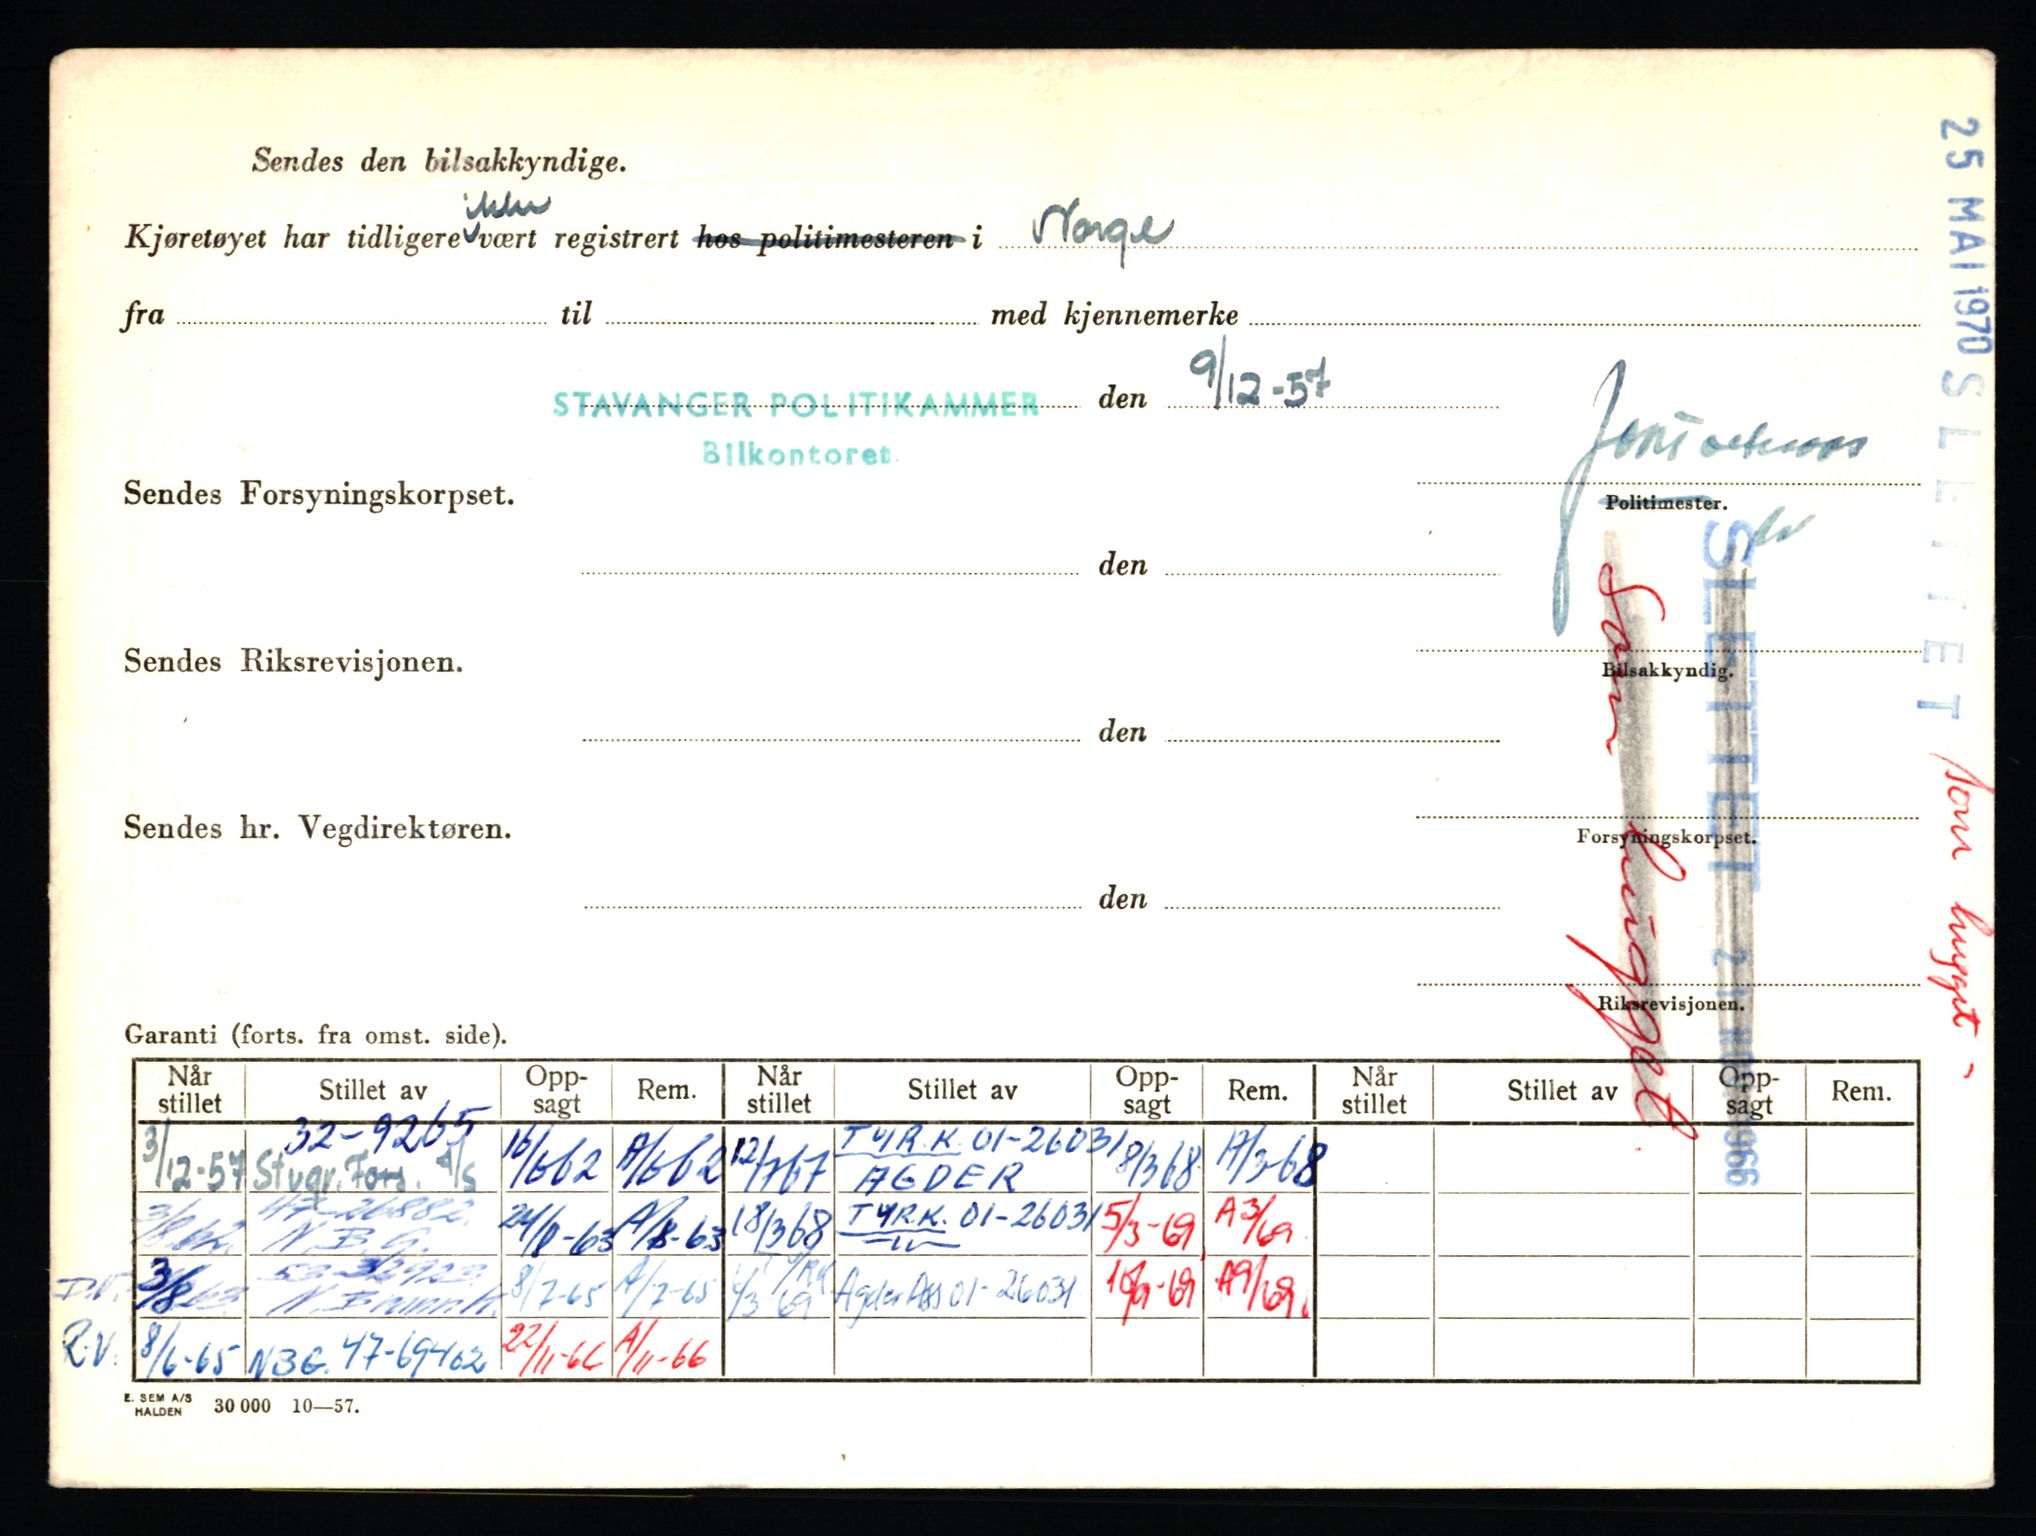 Sendes den bilsakkyndige.
ikke
Kjøretøyet har tidligere vært registrert hos politimesteren i Norge
fra til med kjennemerke
STAVANGER POLITIKAMMER den 9/12-57
Bilkontoret
Sendes Forsyningskorpset.
Politimester.
den
Sendes Riksrevisjonen.
Bilsakkyndig.
den
Sendes hr. Vegdirektøren.
Forsyningskorpset.
den
Riksrevisjonen.
25 MAI 1970 SLETTET som hugget -
SLETTET 21 NOV 1966
Som hugget
Garanti (forts. fra omst. side).
Når stillet Stillet av Opp-sagt Rem. Når stillet Stillet av Opp-sagt Rem. Når stillet Stillet av Opp-sagt Rem.
3/12-57 32-9265 Stvgr. Fors. A/S 16/662 A/662 12/767 TYRK. 01-26031 AGDER 8/368 A/3-68
47-26882 N.B.G. 24/8-63 A/8-63 18/368 TYRK. 01-26031 5/3-69 A3/69
3/8 63 N. Brannk. 8/7-65 A/7-65 4/3-69 Agder Ass 01-26031 10/9-69 A9/69
R.V. 8/6-65 NBG. 47-69462 22/11-66 A/11-66
E. SEM A/S
HALDEN 30 000 10—57.